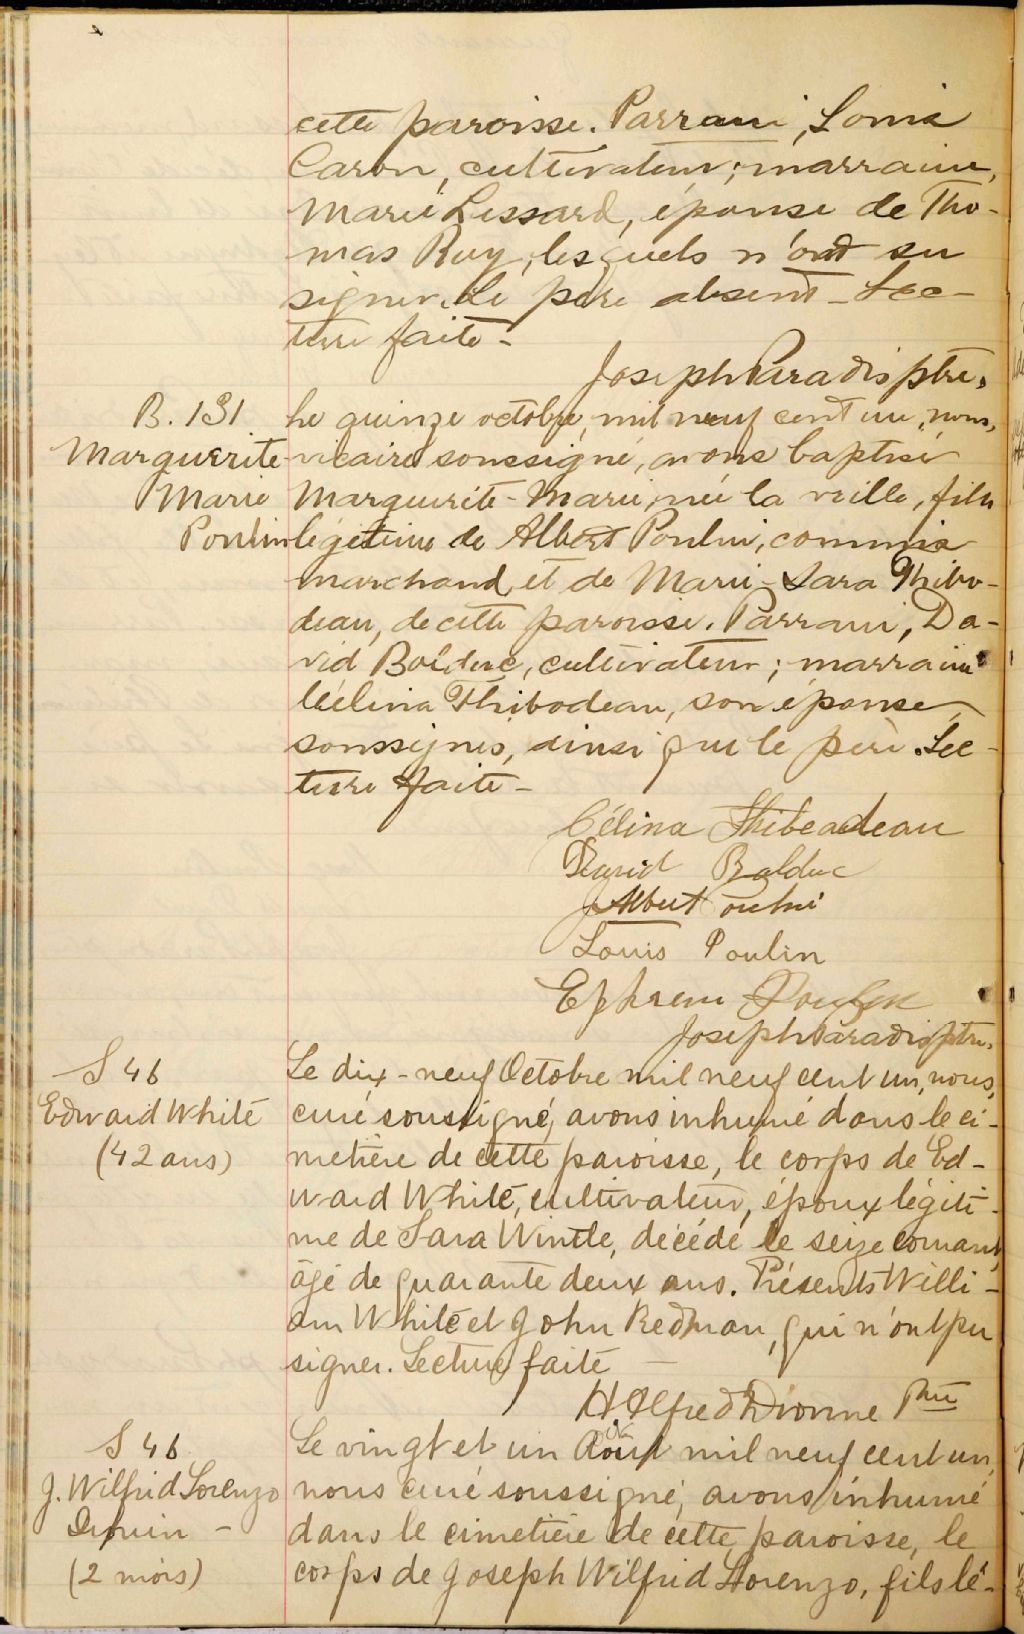 cette paroisse. Parrain, Louis
Caron, cultivateur; marraine,
Marie Lessard, épouse de Tho-
mas Roy, lesquels n'ont su
signer. Le père absent - Lec-
ture faite -
Joseph Paradis ptre.
B. 131
Marguerite
Marie
Poulin
Le quinze octobre, mil neuf cent un, nous,
vicaire soussigné, avons baptisé
Marguerite-Marie, née la veille, fille
légitime de Albert Poulin, commis
marchand et de Marie-Sara Thibo-
deau, de cette paroisse. Parrain, Da-
vid Bolduc, cultivateur; marraine
Célina Thibodeau, son épouse
soussignés, ainsi que le père. Lec-
ture faite -
Célina Thibeadeau
David Bolduc
Albert Poulin
Louis Poulin
Ephrem Poulin
Joseph Paradis ptre.
S 46
Edward White
(42 ans)
Le dix-neuf Octobre mil neuf cent un, nous,
curé soussigné, avons inhumé dans le ci-
metière de cette paroisse, le corps de Ed-
ward White, cultivateur, époux légiti-
me de Sara Wintle, décédé le seize courant,
âgé de quarante deux ans. Présents Willi-
am White et John Redman, qui n'ont pu
signer. Lecture faite -
H Alfred Dionne Ptre
S 46
J. Wilfrid Lorenzo
(2 mois)
Le vingt et un Août mil neuf cent un,
nous curé soussigné, avons inhumé
dans le cimetière de cette paroisse, le
corps de Joseph Wilfrid Lorenzo, fils lé-